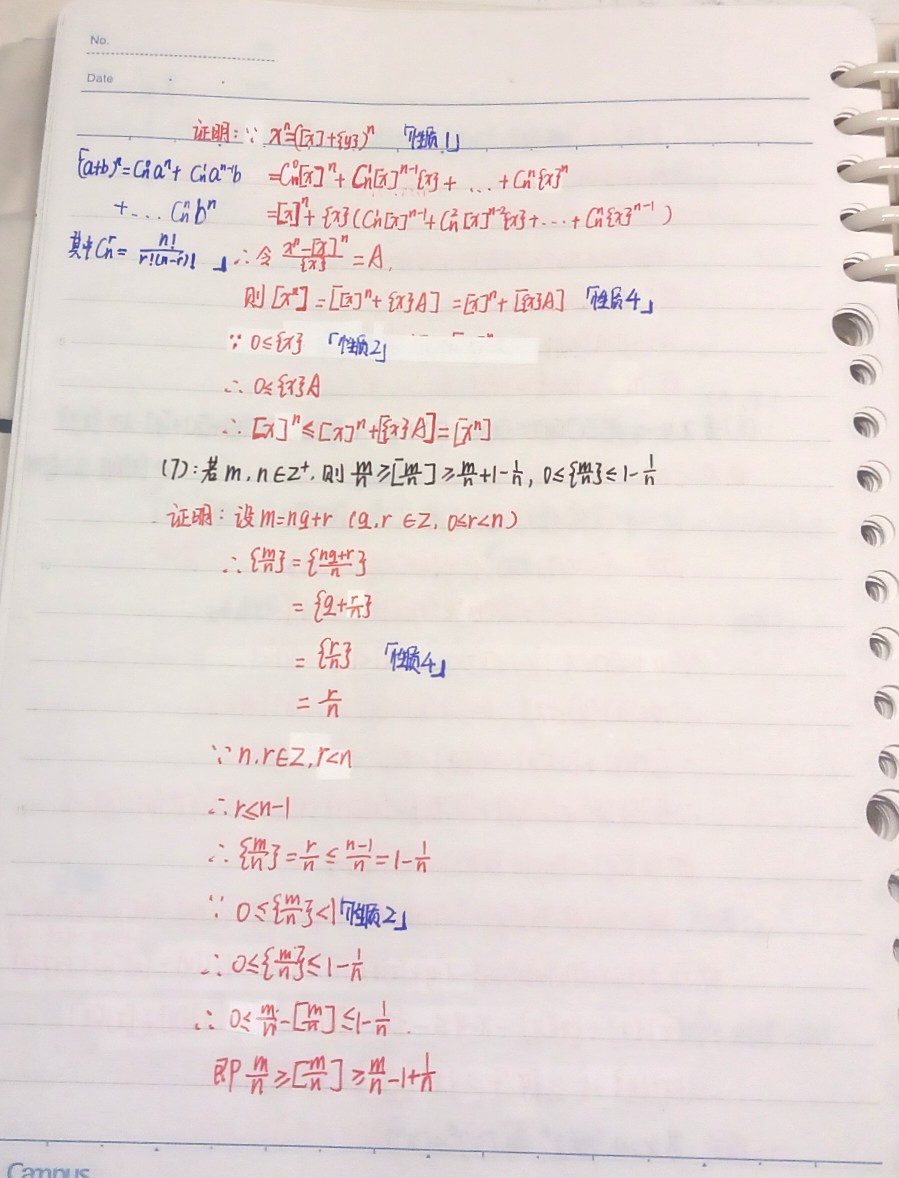 No.
Date
证明:∵ xⁿ=([x]+{y})ⁿ 「性质1」
「(a+b)ⁿ=Cₙ⁰aⁿ+Cₙ¹aⁿ⁻¹b =Cₙ⁰[x]ⁿ+Cₙ¹[x]ⁿ⁻¹{x}+...+Cₙⁿ{x}ⁿ
+...Cₙⁿbⁿ =[x]ⁿ+{x}(Cₙ¹[x]ⁿ⁻¹+Cₙ²[x]ⁿ⁻²{x}+...+Cₙⁿ{x}ⁿ⁻¹)
其中Cₙʳ=n!/r!(n-r)!」 ∴令 (xⁿ-[x]ⁿ)/{x}=A,
则[xⁿ]=[[x]ⁿ+{x}A]=[x]ⁿ+[{x}A] 「性质4」
∵ 0≤{x} 「性质2」
∴ 0≤{x}A
∴ [x]ⁿ≤[x]ⁿ+[{x}A]=[xⁿ]
(7):若m,n∈Z⁺,则 m/n≥[m/n]≥m/n+1-1/n, 0≤{m/n}≤1-1/n
证明:设m=nq+r (q,r∈Z, 0≤r<n)
∴{m/n}={(nq+r)/n}
={q+r/n}
={r/n} 「性质4」
=r/n
∵n,r∈Z,r<n
∴r≤n-1
∴{m/n}=r/n≤(n-1)/n=1-1/n
∵ 0≤{m/n}<1「性质2」
∴ 0≤{m/n}≤1-1/n
∴ 0≤m/n-[m/n]≤1-1/n.
即 m/n≥[m/n]≥m/n-1+1/n
Campus